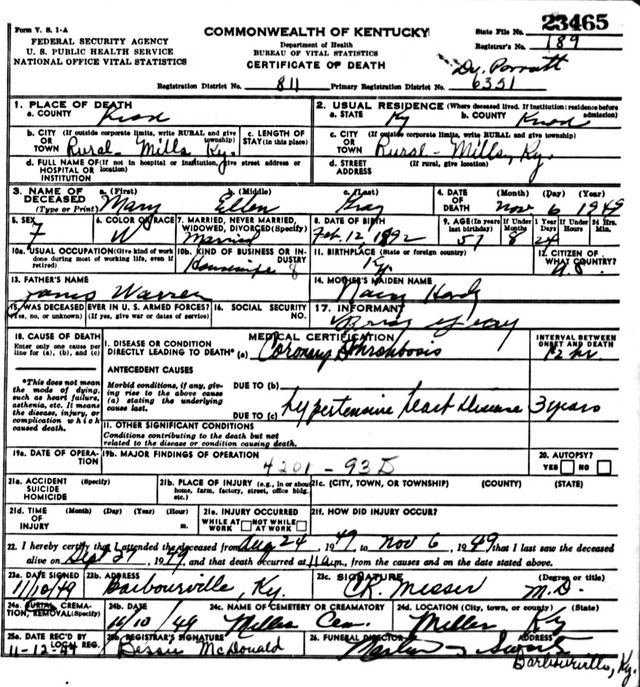 Form V. S. 1-A
COMMONWEALTH OF KENTUCKY
State File No. 23465
FEDERAL SECURITY AGENCY
U. S. PUBLIC HEALTH SERVICE
NATIONAL OFFICE VITAL STATISTICS
Department of Health
BUREAU OF VITAL STATISTICS
CERTIFICATE OF DEATH
Registrar's No. 189
Registration District No. 811 Primary Registration District No. 6351
1. PLACE OF DEATH
a. COUNTY Knox
2. USUAL RESIDENCE (Where deceased lived. If institution: residence before admission)
a. STATE Ky b. COUNTY Knox
b. CITY (If outside corporate limits, write RURAL and give township)
OR TOWN Rural - Mills Ky.
c. LENGTH OF STAY (in this place)
c. CITY (If outside corporate limits, write RURAL and give township)
OR TOWN Rural - Mills, Ky.
d. FULL NAME OF (If not in hospital or institution, give street address or location)
HOSPITAL OR INSTITUTION
d. STREET ADDRESS (If rural, give location)
3. NAME OF DECEASED (Type or Print)
a. (First) Mary
b. (Middle) Ellen
c. (Last)
4. DATE OF DEATH (Month) (Day) (Year) Nov 6 1949
5. SEX F
6. COLOR OR RACE W
7. MARRIED, NEVER MARRIED, WIDOWED, DIVORCED (Specify) Married
8. DATE OF BIRTH Feb. 12 1892
9. AGE (In years last birthday) 57
If Under 1 Year Months 8 Days 24
If Under 24 Hrs. Hours Min.
10a. USUAL OCCUPATION (Give kind of work done during most of working life, even if retired)
10b. KIND OF BUSINESS OR INDUSTRY
Housewife
11. BIRTHPLACE (State or foreign country) Ky.
12. CITIZEN OF WHAT COUNTRY? U.S.
13. FATHER'S NAME
James Warren
14. MOTHER'S MAIDEN NAME
Nancy
15. WAS DECEASED EVER IN U. S. ARMED FORCES?
(Yes, no, or unknown) (If yes, give war or dates of service)
16. SOCIAL SECURITY NO.
17. INFORMANT
18. CAUSE OF DEATH
Enter only one cause per line for (a), (b), and (c)
MEDICAL CERTIFICATION
I. DISEASE OR CONDITION
DIRECTLY LEADING TO DEATH* (a) Coronary Thrombosis
INTERVAL BETWEEN ONSET AND DEATH
1/2 hr
*This does not mean the mode of dying, such as heart failure, asthenia, etc. It means the disease, injury, or complication which caused death.
ANTECEDENT CAUSES
Morbid conditions, if any, giving rise to the above cause (a) stating the underlying cause last.
DUE TO (b)
DUE TO (c) Hypertensive heart Disease 3 years
II. OTHER SIGNIFICANT CONDITIONS
Conditions contributing to the death but not related to the disease or condition causing death.
19a. DATE OF OPERATION
19b. MAJOR FINDINGS OF OPERATION
4201 - 93D
20. AUTOPSY?
YES NO
21a. ACCIDENT SUICIDE HOMICIDE (Specify)
21b. PLACE OF INJURY (e.g., in or about home, farm, factory, street, office bldg. etc.)
21c. (CITY, TOWN, OR TOWNSHIP) (COUNTY) (STATE)
21d. TIME OF INJURY (Month) (Day) (Year) (Hour) m.
21e. INJURY OCCURRED
WHILE AT WORK NOT WHILE AT WORK
21f. HOW DID INJURY OCCUR?
22. I hereby certify that I attended the deceased from Aug 24, 1949, to Nov 6, 1949 that I last saw the deceased
alive on Sept 27, 1949, and that death occurred at 11 A.m., from the causes and on the date stated above.
23a. DATE SIGNED 11/10/49
23b. ADDRESS Barbourville, Ky.
23c. SIGNATURE Messer (Degree or title) M.D.
24a. BURIAL, CREMATION, REMOVAL (Specify)
24b. DATE 10/49
24c. NAME OF CEMETERY OR CREAMATORY Cem.
24d. LOCATION (City, town, or county) (State) Ky
25a. DATE REC'D BY LOCAL REG. 11-12-49
25b. REGISTRAR'S SIGNATURE Bessie McDonald
26. FUNERAL DIRECTOR ADDRESS
Barbourville, Ky.